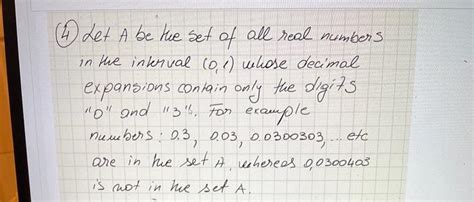 ④ Let A be the set of all real numbers
in the interval (0,1) whose decimal
expansions contain only the digits
"0" and "3". For example
numbers: 0.3, 0,03, 0.0300303, ... etc
are in the set A, whereas 0,0300403
is not in the set A.